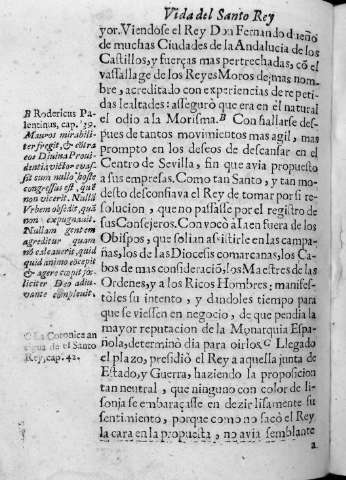 Vida del Santo Rey
yor. Viendose el Rey Don Fernando dueño
de muchas Ciudades de la Andalucia de los
Castillos, y fuerças mas pertrechadas, cõ el
vassallage de los Reyes Moros de mas nom-
bre, acreditado con experiencias de repeti-
das lealtades: asseguró que era en él natural
el odio à la Morisma.B Con hallarse des-
pues de tantos movimientos mas agil, mas
prompto en los deseos de descansar en el
Centro de Sevilla, fin que avia propuesto
a sus empresas. Como tan Santo, y tan mo-
desto desconfiava el Rey de tomar por si re-
solucion, que no passasse por el registro de
sus Consejeros. Convocò à la en fuera de los
Obispos, que solian assistirle en las campa-
ñas, los de las Diocesis comarcanas, los Ca-
bos de mas consideraciõ, los Maestres de las
Ordenes, y a los Ricos Hombres: manifes-
tòles su intento, y dandoles tiempo para
que se viessen en negocio, de que pendia la
mayor reputacion de la Monarquia Espa-
ñola, determinò dia para oirlos.C Llegado
el plazo, presidiò el Rey a aquella junta de
Estado, y Guerra, haziendo la proposicion
tan neutral, que ninguno con color de li-
sonja se embaraçasse en dezir lisamente su
sentimiento, porque como no sacó el Rey
la cara en la propuesta, no avia semblante
a
B Rodericus Pa-
lentinus, cap. 39.
Mauros mirabili-
ter fregit, & cõtra
eos Divina Provi-
dentia victor evas-
sit cum nullo hoste
congressus est, quẽ
non vicerit. Nullã
Urbem obsedit, quã
non expugnavit.
Nullam gentem
agreditur quam
nõ calcaverit, quid
quid animo cœpit
& agere cœpit fœ-
liciter Deo adiu-
vante conplevit.
C La Coronica an
tigua de el Santo
Rey, cap. 42.